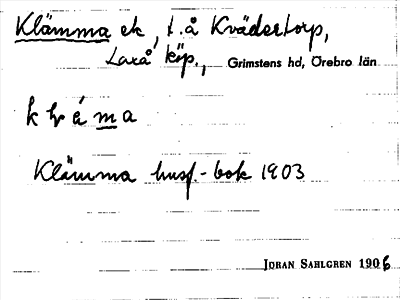 Klämma ek, t. å Kvädsertorp,
Laxå köp., Grimstens hd, Örebro län
Klämma husf.-bok 1903
JÖRAN SAHLGREN 1906